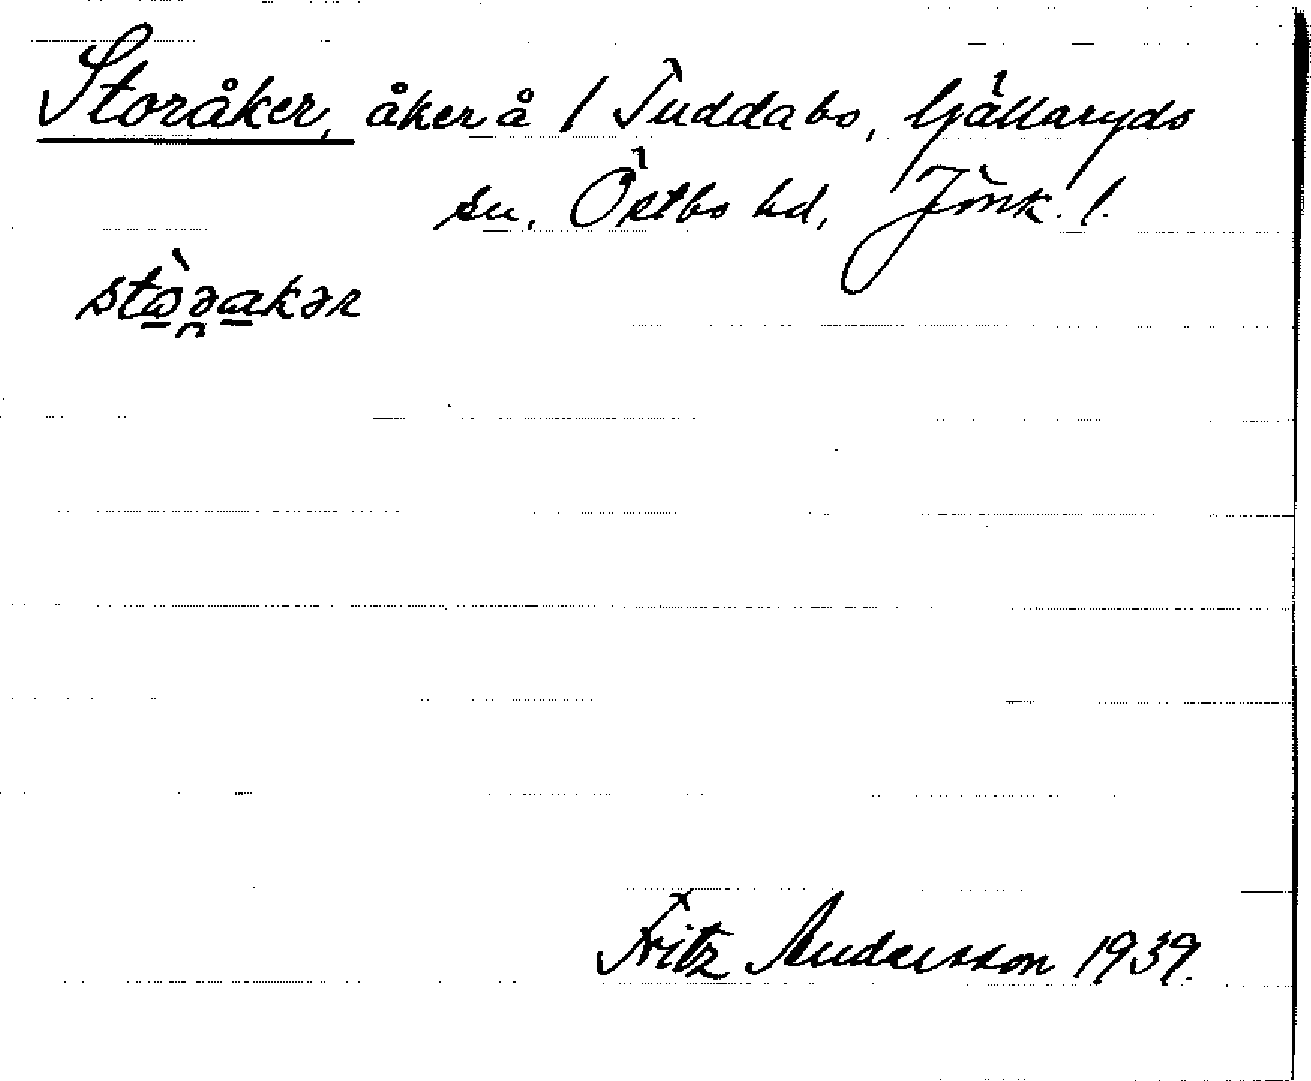 Storåker, åker å 1 Tuddabo, Gällaryds
sn, Östbo hd, Jönk. l.
Fritz Andersson 1939.